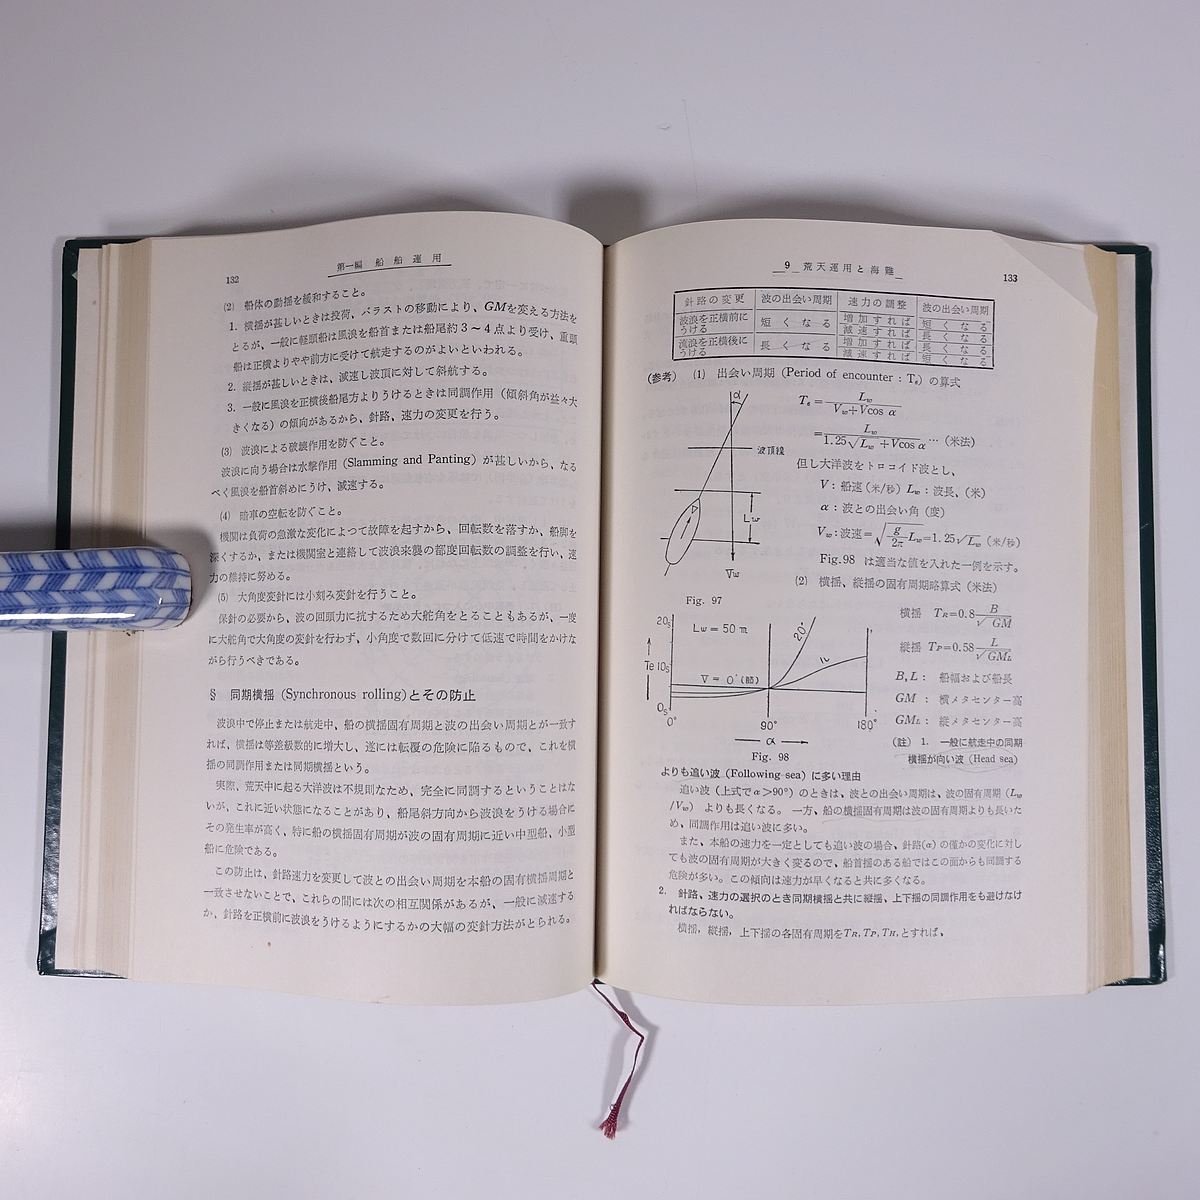 132
第一編 船舶運用
(2) 船体の動揺を緩和すること。
1. 横揺が甚しいときは投荷、バラストの移動により、GMを変える方法を
とるが、一般に軽頭船は風浪を船首または船尾約3〜4点より受け、重頭
船は正横よりやや前方に受けて航走するのがよいといわれる。
2. 縦揺が甚しいときは、減速し波頂に対して斜航する。
3. 一般に風浪を正横後船尾方よりうけるときは同調作用（傾斜角が益々大
きくなる）の傾向があるから、針路、速力の変更を行う。
(3) 波浪による破壊作用を防ぐこと。
波浪に向う場合は水撃作用 (Slamming and Panting) が甚しいから、なる
べく風浪を船首斜めにうけ、減速する。
(4) 暗車の空転を防ぐこと。
機関は負荷の急激な変化によつて故障を起すから、回転数を落すか、船脚を
深くするか、または機関室と連絡して波浪来襲の都度回転数の調整を行い、速
力の維持に努める。
(5) 大角度変針には小刻み変針を行うこと。
保針の必要から、波の回頭力に抗するため大舵角をとることもあるが、一度
に大舵角で大角度の変針を行わず、小角度で数回に分けて低速で時間をかけな
がら行うべきである。
§ 同期横揺 (Synchronous rolling)とその防止
波浪中で停止または航走中、船の横揺固有周期と波の出会い周期とが一致す
れば、横揺は等差級数的に増大し、遂には転覆の危険に陥るもので、これを横
揺の同調作用または同期横揺という。
実際、荒天中に起る大洋波は不規則なため、完全に同調するということはな
いが、これに近い状態になることがあり、船尾斜方向から波浪をうける場合に
その発生率が高く、特に船の横揺固有周期が波の固有周期に近い中型船、小型
船に危険である。
この防止は、針路速力を変更して波との出会い周期を本船の固有横揺周期と
一致させないことで、これらの間には次の相互関係があるが、一般に減速する
か、針路を正横前に波浪をうけるようにするかの大幅の変針方法がとられる。
9 荒天運用と海難
133
針路の変更 波の出会い周期 速力の調整 波の出会い周期
波浪を正横前にうける 短くなる 増加すれば 短くなる
減速すれば 長くなる
流浪を正横後にうける 長くなる 増加すれば 長くなる
減速すれば 短くなる
(参考) (1) 出会い周期 (Period of encounter : Te) の算式
Te = Lw / (Vw+Vcos α)
= Lw / (1.25√Lw +Vcos α) … (米法)
但し大洋波をトロコイド波とし、
V : 船速 (米/秒) Lw : 波長、(米)
α : 波との出会い角 (度)
Vw : 波速 = √(g/2π Lw) = 1.25√Lw (米/秒)
Fig.98 は適当な値を入れた一例を示す。
α
波頂線
Lw
Vw
Fig. 97
(2) 横揺、縦揺の固有周期略算式 (米法)
横揺 TR = 0.8 B/√GM
縦揺 TP = 0.58 L/√GML
B, L : 船幅および船長
GM : 横メタセンター高
GML : 縦メタセンター高
20s
Te 10s
0s
Lw = 50 m
V = 0'(節)
20'
12'
0° 90° 180°
α
Fig. 98
(註) 1. 一般に航走中の同期
横揺が向い波 (Head sea)
よりも追い波 (Following sea) に多い理由
追い波 (上式でα>90°) のときは、波との出会い周期は、波の固有周期 (Lw
/Vw) よりも長くなる。一方、船の横揺固有周期は波の固有周期よりも長いた
め、同調作用は追い波に多い。
また、本船の速力を一定としても追い波の場合、針路(α) の僅かの変化に対し
ても波の固有周期が大きく変るので、船首揺のある船ではこの面からも同調する
危険が多い。この傾向は速力が早くなると共に多くなる。
2. 針路、速力の選択のとき同期横揺と共に縦揺、上下揺の同調作用をも避けなけ
ればならない。
横揺，縦揺，上下揺の各固有周期をTR, TP, TH, とすれば、